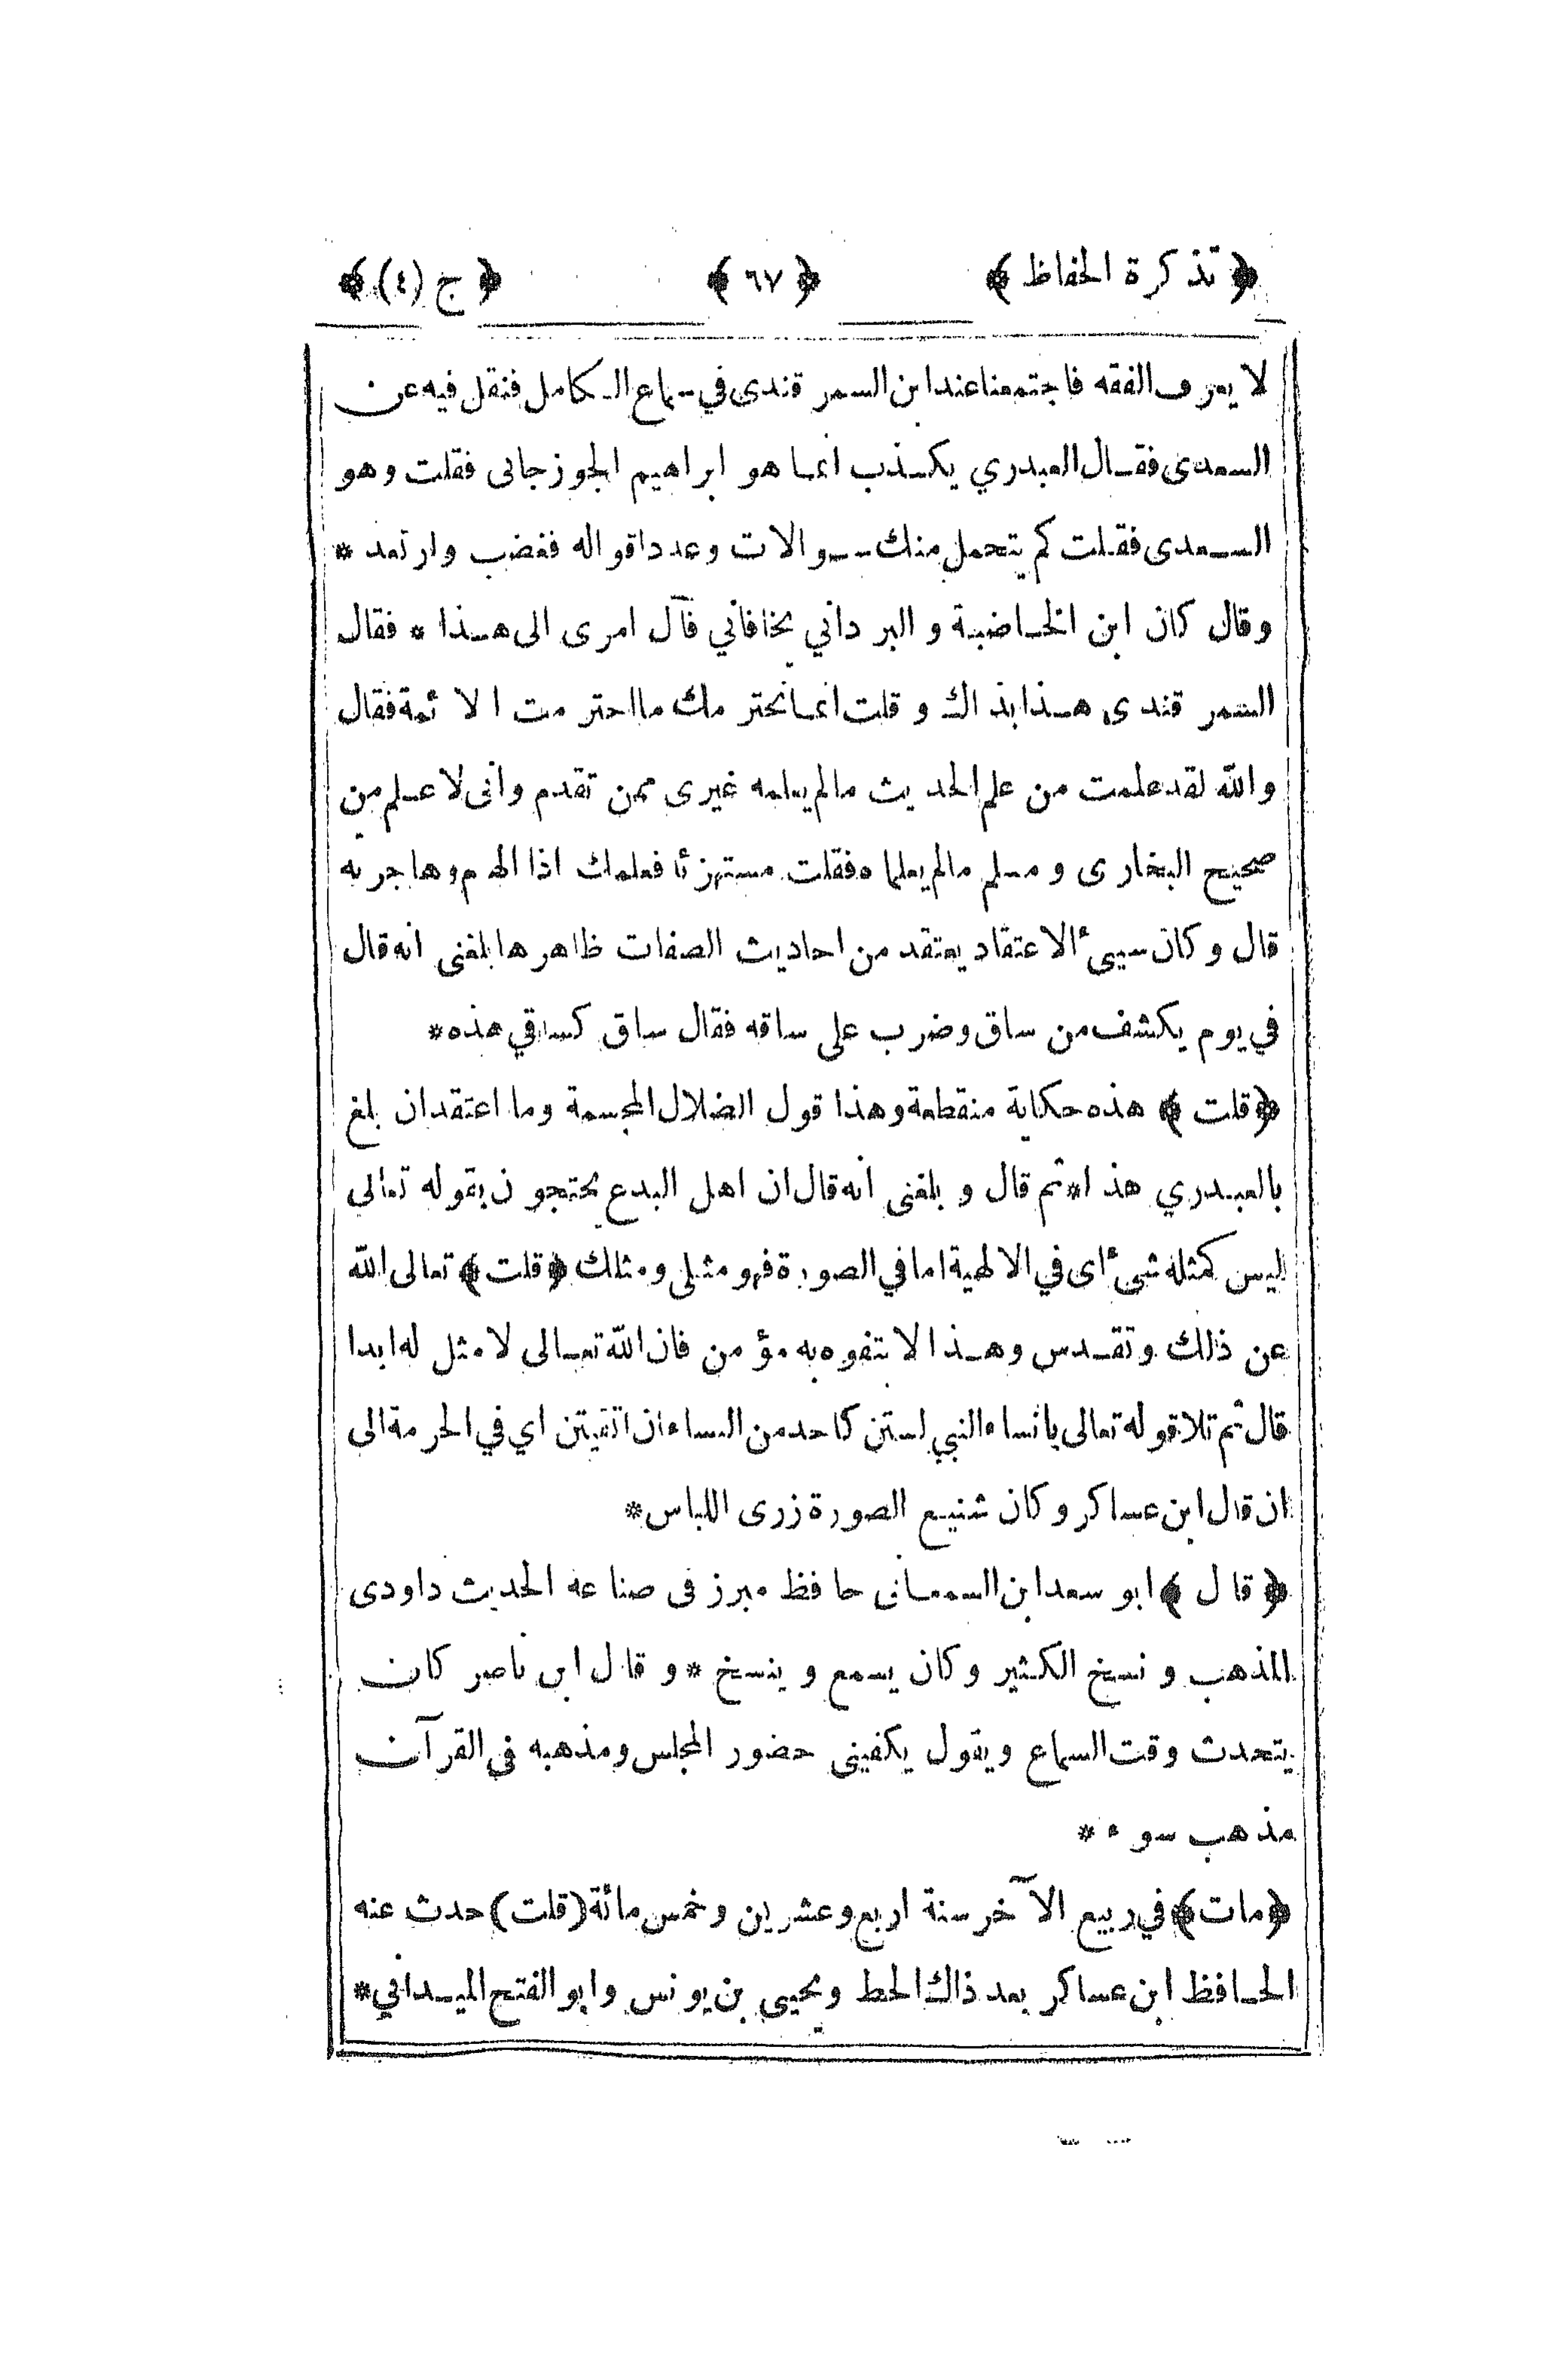 ﴿ تذكرة الحفاظ ﴾ ﴿ ٦٧ ﴾ ﴿ ج (٤) ﴾
لا يعرف الفقه فاجتمعنا عند ابن السمرقندى في سماع الكامل فنقل فيه عن
السعدى فقال العبدري يكذب انما هو ابراهيم الجوزجانى فقلت وهو
السعدى فقلت كم يتحمل منك سوالات وعدد اقواله فغضب وارتعد *
وقال كان ابن الخاضبة والبرداني يخافاني فآل امرى الى هذا * فقال
السمرقندى هذا بذاك وقلت انما نحترمك ما احترمت الائمة فقال
والله لقد علمت من علم الحديث مالم يعلمه غيرى ممن تقدم وانى لا علم من
صحيح البخارى ومسلم مالم يعلماه فقلت مستهزئا فعلمك اذا الهام وهاجرته
قال وكان سيئ الاعتقاد يعتقد من احاديث الصفات ظاهرها بلغنى انه قال
في يوم يكشف من ساق وضرب على ساقه فقال ساق كساقي هذه *
﴿ قلت ﴾ هذه حكاية منقطعة وهذا قول الضلال المجسمة وما اعتقد ان بلغ
بالعبدري هذا * ثم قال وبلغنى انه قال ان اهل البدع يحتجون بقوله تعالى
ليس كمثله شئ اى في الالهية اما في الصورة فهو مثلى ومثلك ﴿ قلت ﴾ تعالى الله
عن ذالك وتقدس وهذا لا يتفوه به مؤمن فان الله تعالى لا مثل له ابدا
قال ثم تلا قوله تعالى يا نساء النبي لستن كاحد من النساء ان اتقيتن اي في الحرمة الى
ان قال ابن عساكر وكان شنيع الصورة زرى اللباس *
﴿ قال ﴾ ابو سعد ابن السمعانى حافظ مبرز فى صناعه الحديث داودى
المذهب ونسخ الكثير وكان يسمع وينسخ * وقال ابن ناصر كان
يتحدث وقت السماع ويقول يكفينى حضور المجلس ومذهبه في القرآن
مذهب سوء *
﴿ مات ﴾ في ربيع الآخر سنة اربع وعشرين وخمس مائة (قلت) حدث عنه
الحافظ ابن عساكر بعد ذاك الحط ويحيى بن يونس وابو الفتح الميداني *